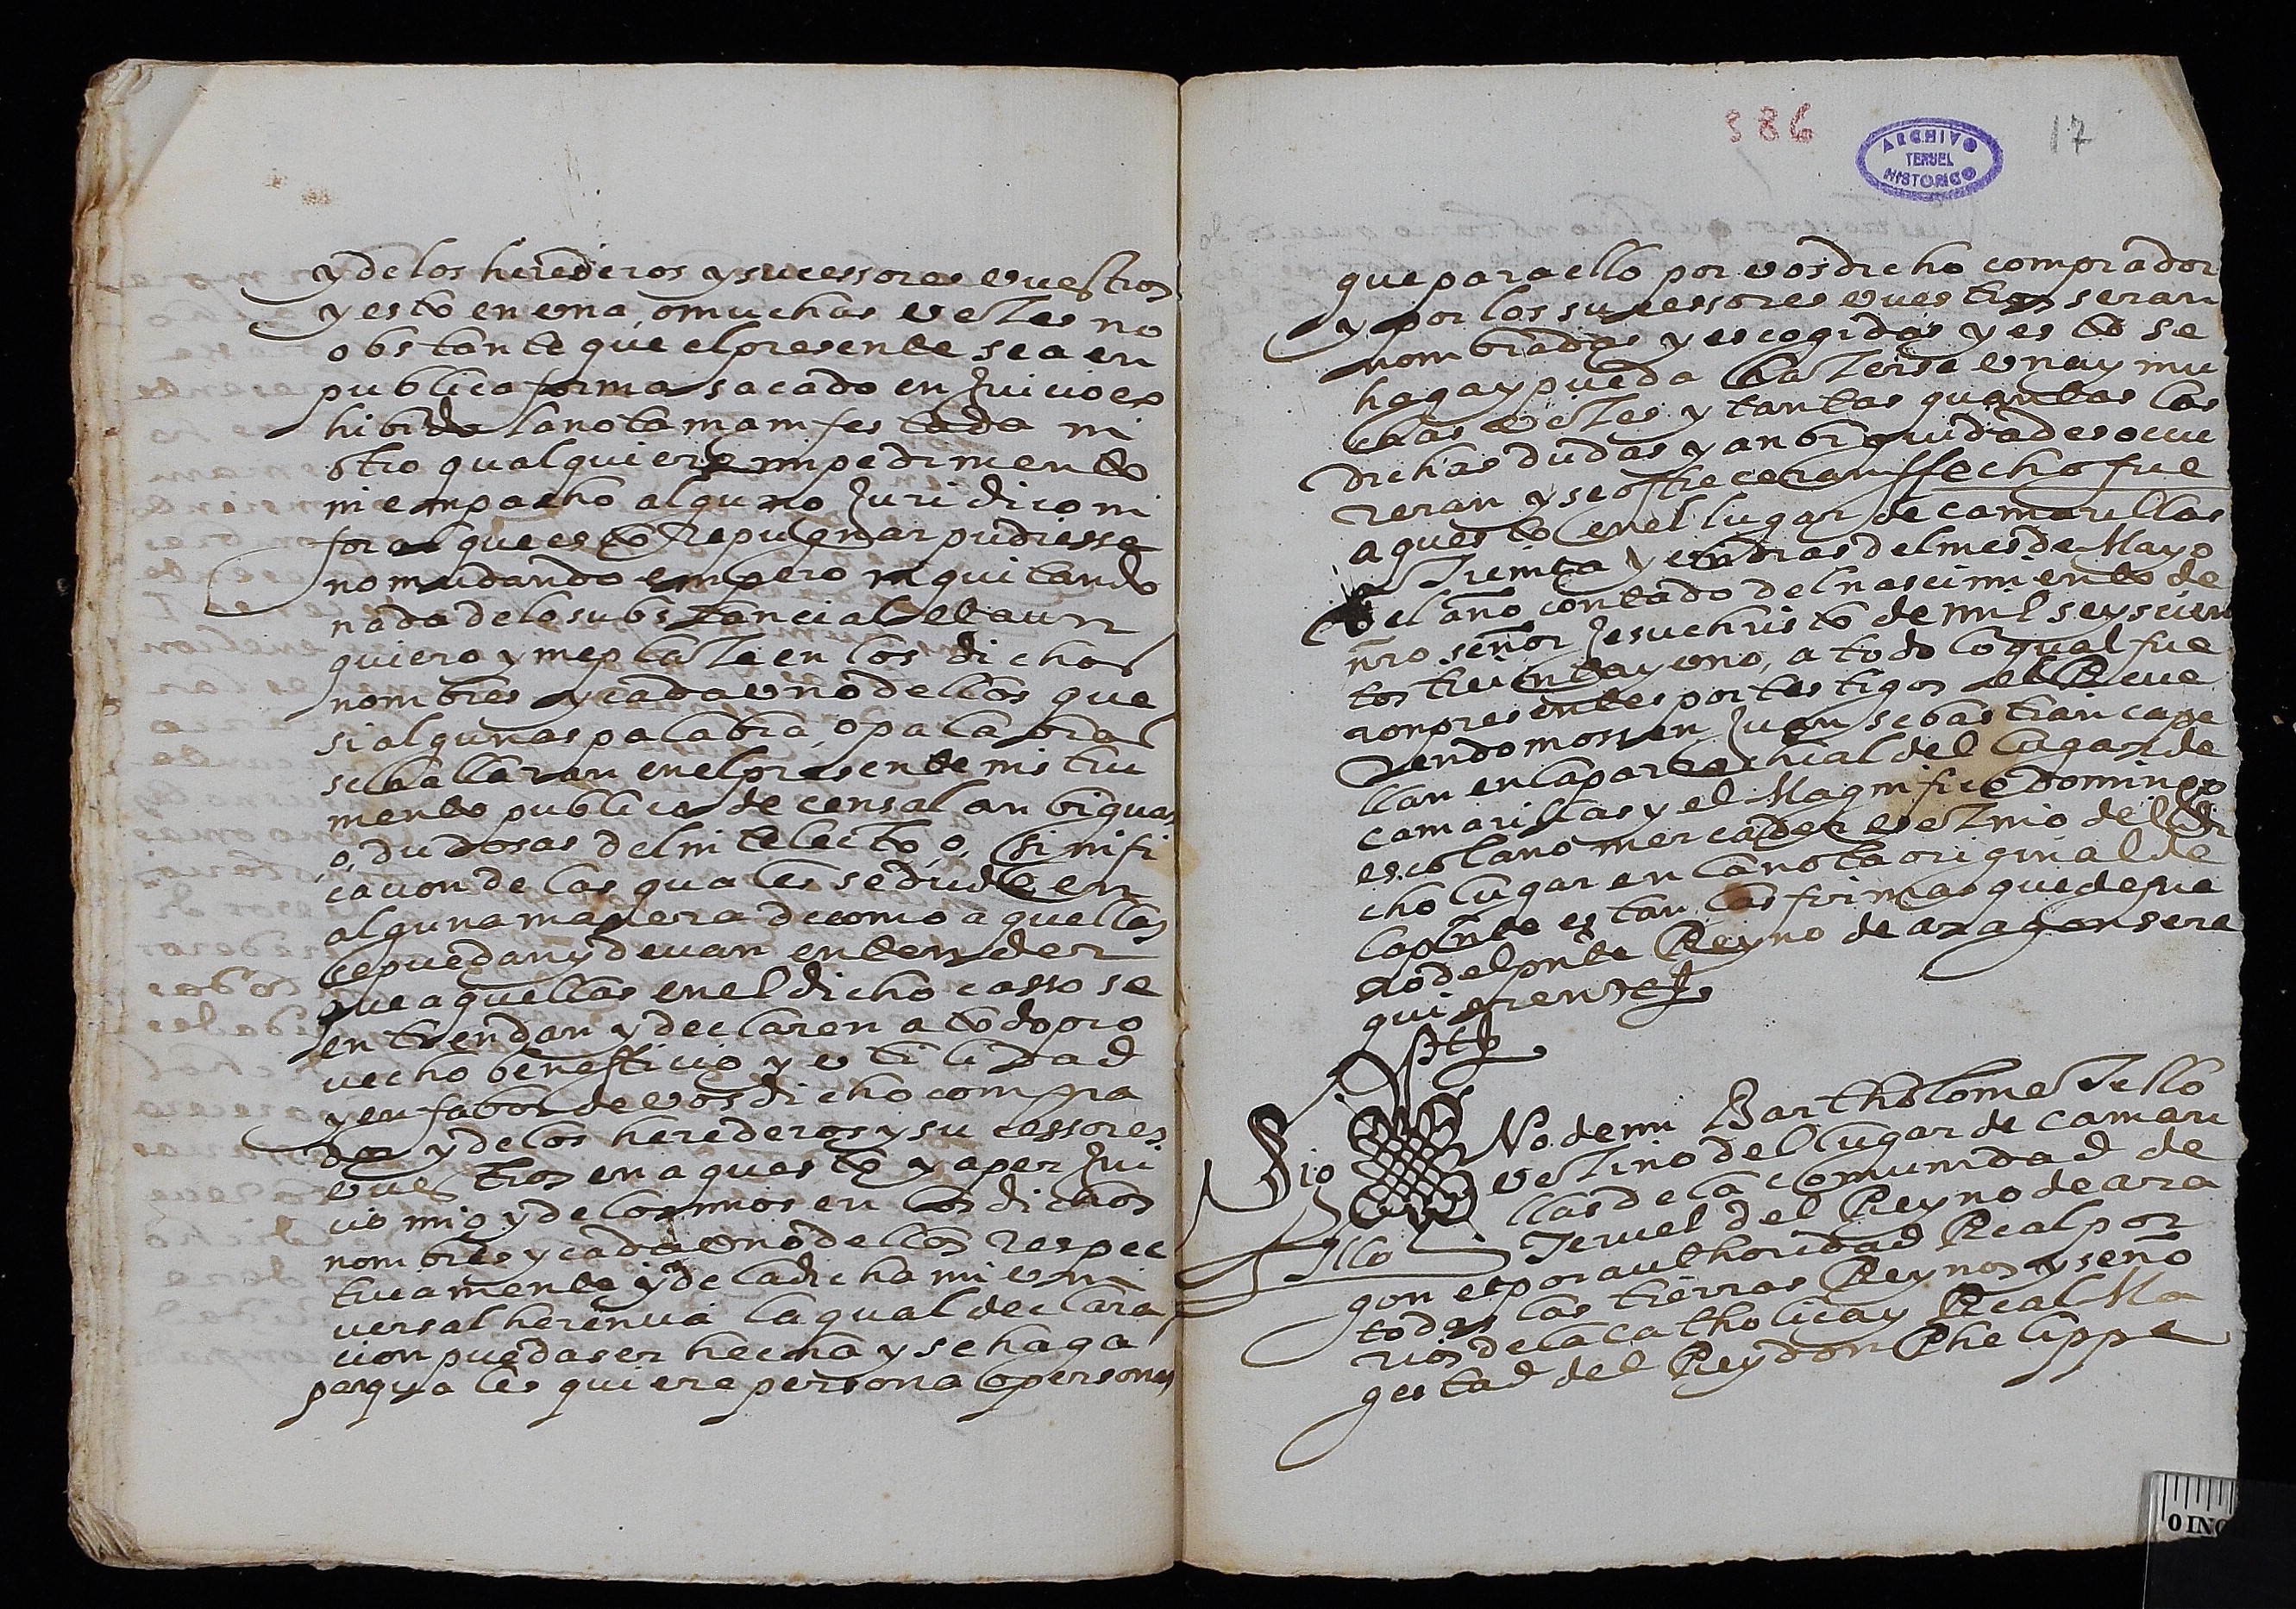 y de los herederos y sucessores vuestros
y esto en vna, o muchas vezes no
obstante que el presente sea en
publica forma sacado en Juicio ex
hibido la nota manifestada ni
otro qualquiere impedimento
ni empacho alguno Juridico ni
foral que esto repugnar pudiesse
no mudando empero ni quitando
nada de lo substancial et aun
quiero y me plaze en los dichos
nombres y cada vno dellos que
si algunas palabra, o palabras
se hallaran en el presente instru
mento publico de censal anbiguas
o, dudosas del intelecto, o, sinifi
cacion de las quales se dude en
alguna manera de como aquellas
se puedan y deuan entender
que aquellas en el dicho casso se
entiendan y declaren a todo pro
uecho beneficio y vtilidad
y en fabor de vos dicho compra
dor y de los herederos y sucessores
vuestros en aquesto y a per Jui
cio mio y de los mios en los dichos
nombres y cada vno dellos respec
tiuamente y de la dicha mi vni
uersal herencia la qual declara
cion pueda ser hecha y se haga
por qualesquiere persona o personas
386
ARCHIVO
TERUEL
HISTORICO
17
que para ello por vos dicho comprador
y por los sucessores vuestros seran
nombradas y escogidas y esto se
haga y pueda hazerse vna y mu
chas vezes y tantas quantas las
dichas dudas y anbiguidades ocur
reran y se ofreceran ffecho fue
aquesto en el lugar de camarillas
a Treinta y vn dias del mes de Mayo
del año contado del nascimiento de
nro señor Jesuchristo de mil seyscien
tos treinta y vno, a todo lo qual fue
ron presentes por testigos el Reue
rendo mossen Juan sebastian cape
llan en la parrochial del lugar de
camarillas y el Magnifico Domingo
escolano mercader vezino del di
cho lugar en la nota original de
la pnte estan las firmas que de fue
ro del pnte Reyno de aragon se re
quieren
Sig No de mi Bartholome Tello
vezino del lugar de camari
llas de la comunidad de
Tello Teruel del Reyno de ara
gon et por authoridad Real por
todas las tierras Reynos y seño
rios de la catholica y Real Ma
gestad del Rey don Phelippe
0 INC